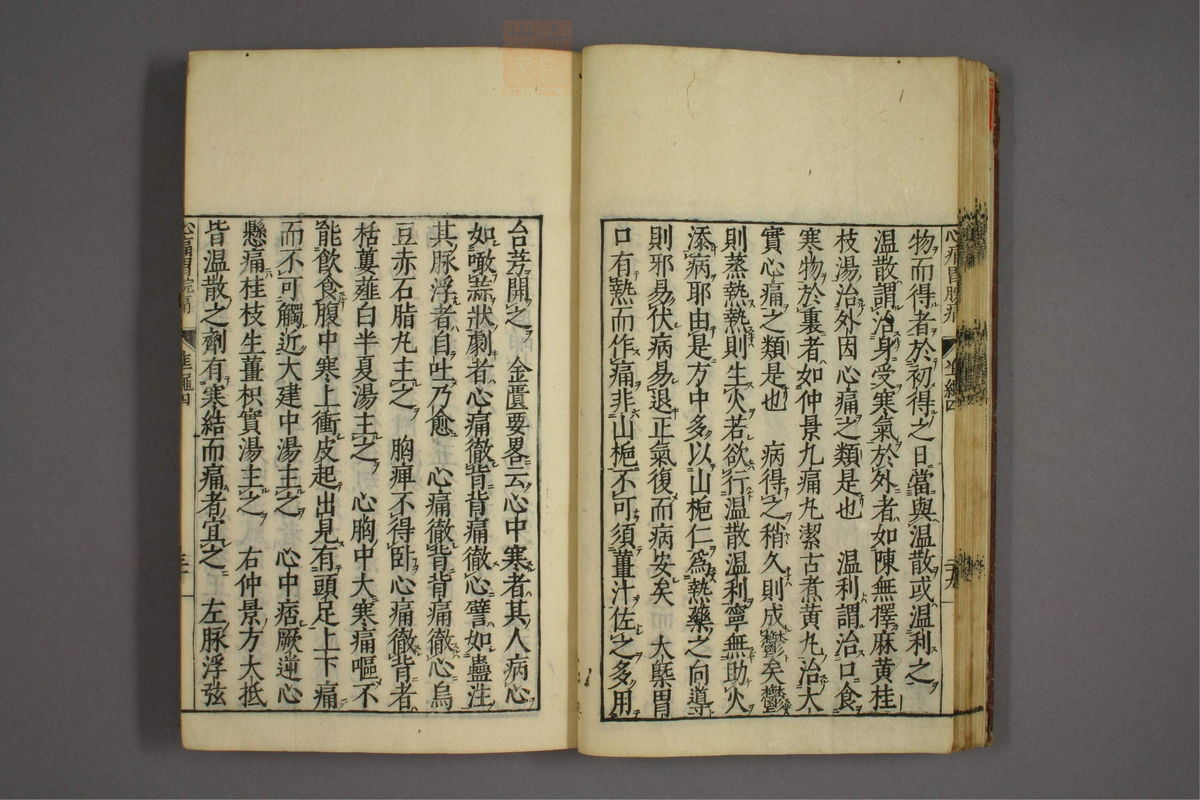 心痛胃脘痛
物而得者於初得之日當與温散或温利之
温散謂治身受寒氣於外者如陳無擇麻黄桂
枝湯治外因心痛之類是也　温利謂治口食
寒物於裏者如仲景九痛丸潔古煮黄丸治大
實心痛之類是也　病得之稍久則成鬱矣鬱
則蒸熱熱則生火若欲行温散温利寧無助火
添病耶由是方中多以山梔仁爲熱藥之向導
則邪易伏病易退正氣復而病安矣　大槩胃
口有熱而作痛非山梔不可須薑汁佐之多用
台芎開之　金匱要畧云心中寒者其人病心
如噉蒜狀劇者心痛徹背背痛徹心譬如蠱注
其脉浮者自吐乃愈　心痛徹背背痛徹心烏
豆赤石脂丸主之　胸痺不得卧心痛徹背者
栝蔞薤白半夏湯主之　心胸中大寒痛嘔不
能飲食腹中寒上衝皮起出見有頭足上下痛
而不可觸近大建中湯主之　心中痞厥逆心
懸痛桂枝生薑枳實湯主之　右仲景方大抵
皆温散之劑有寒結而痛者宜之　左脉浮弦
心痛胃脘痛